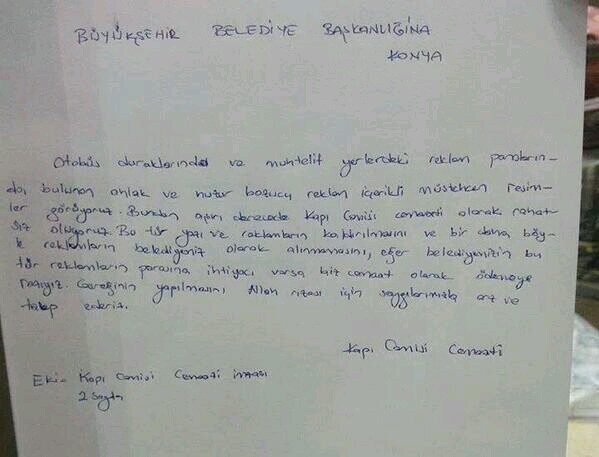 BÜYÜKŞEHİR BELEDİYE BAŞKANLIĞINA
KONYA
Otobüs duraklarında ve muhtelif yerlerdeki reklam panoların-
da, bulunan ahlak ve huzur bozucu reklam içerikli müstehcen resim-
ler görüyoruz. Bundan aşırı derecede Kapı Camisi cemaati olarak rahat-
sız oluyoruz. Bu tür yazı ve reklamların kaldırılmasını ve bir daha böy-
le reklamların belediyeniz olarak alınmamasını, eğer belediyenizin bu
tür reklamların parasına ihtiyacı varsa biz cemaat olarak ödemeye
razıyız. Gereğinin yapılmasını Allah rızası için saygılarımızla arz ve
talep ederiz.
Kapı Camisi Cemaati
Ek: Kapı Camisi Cemaati imzası
2 Sayfa